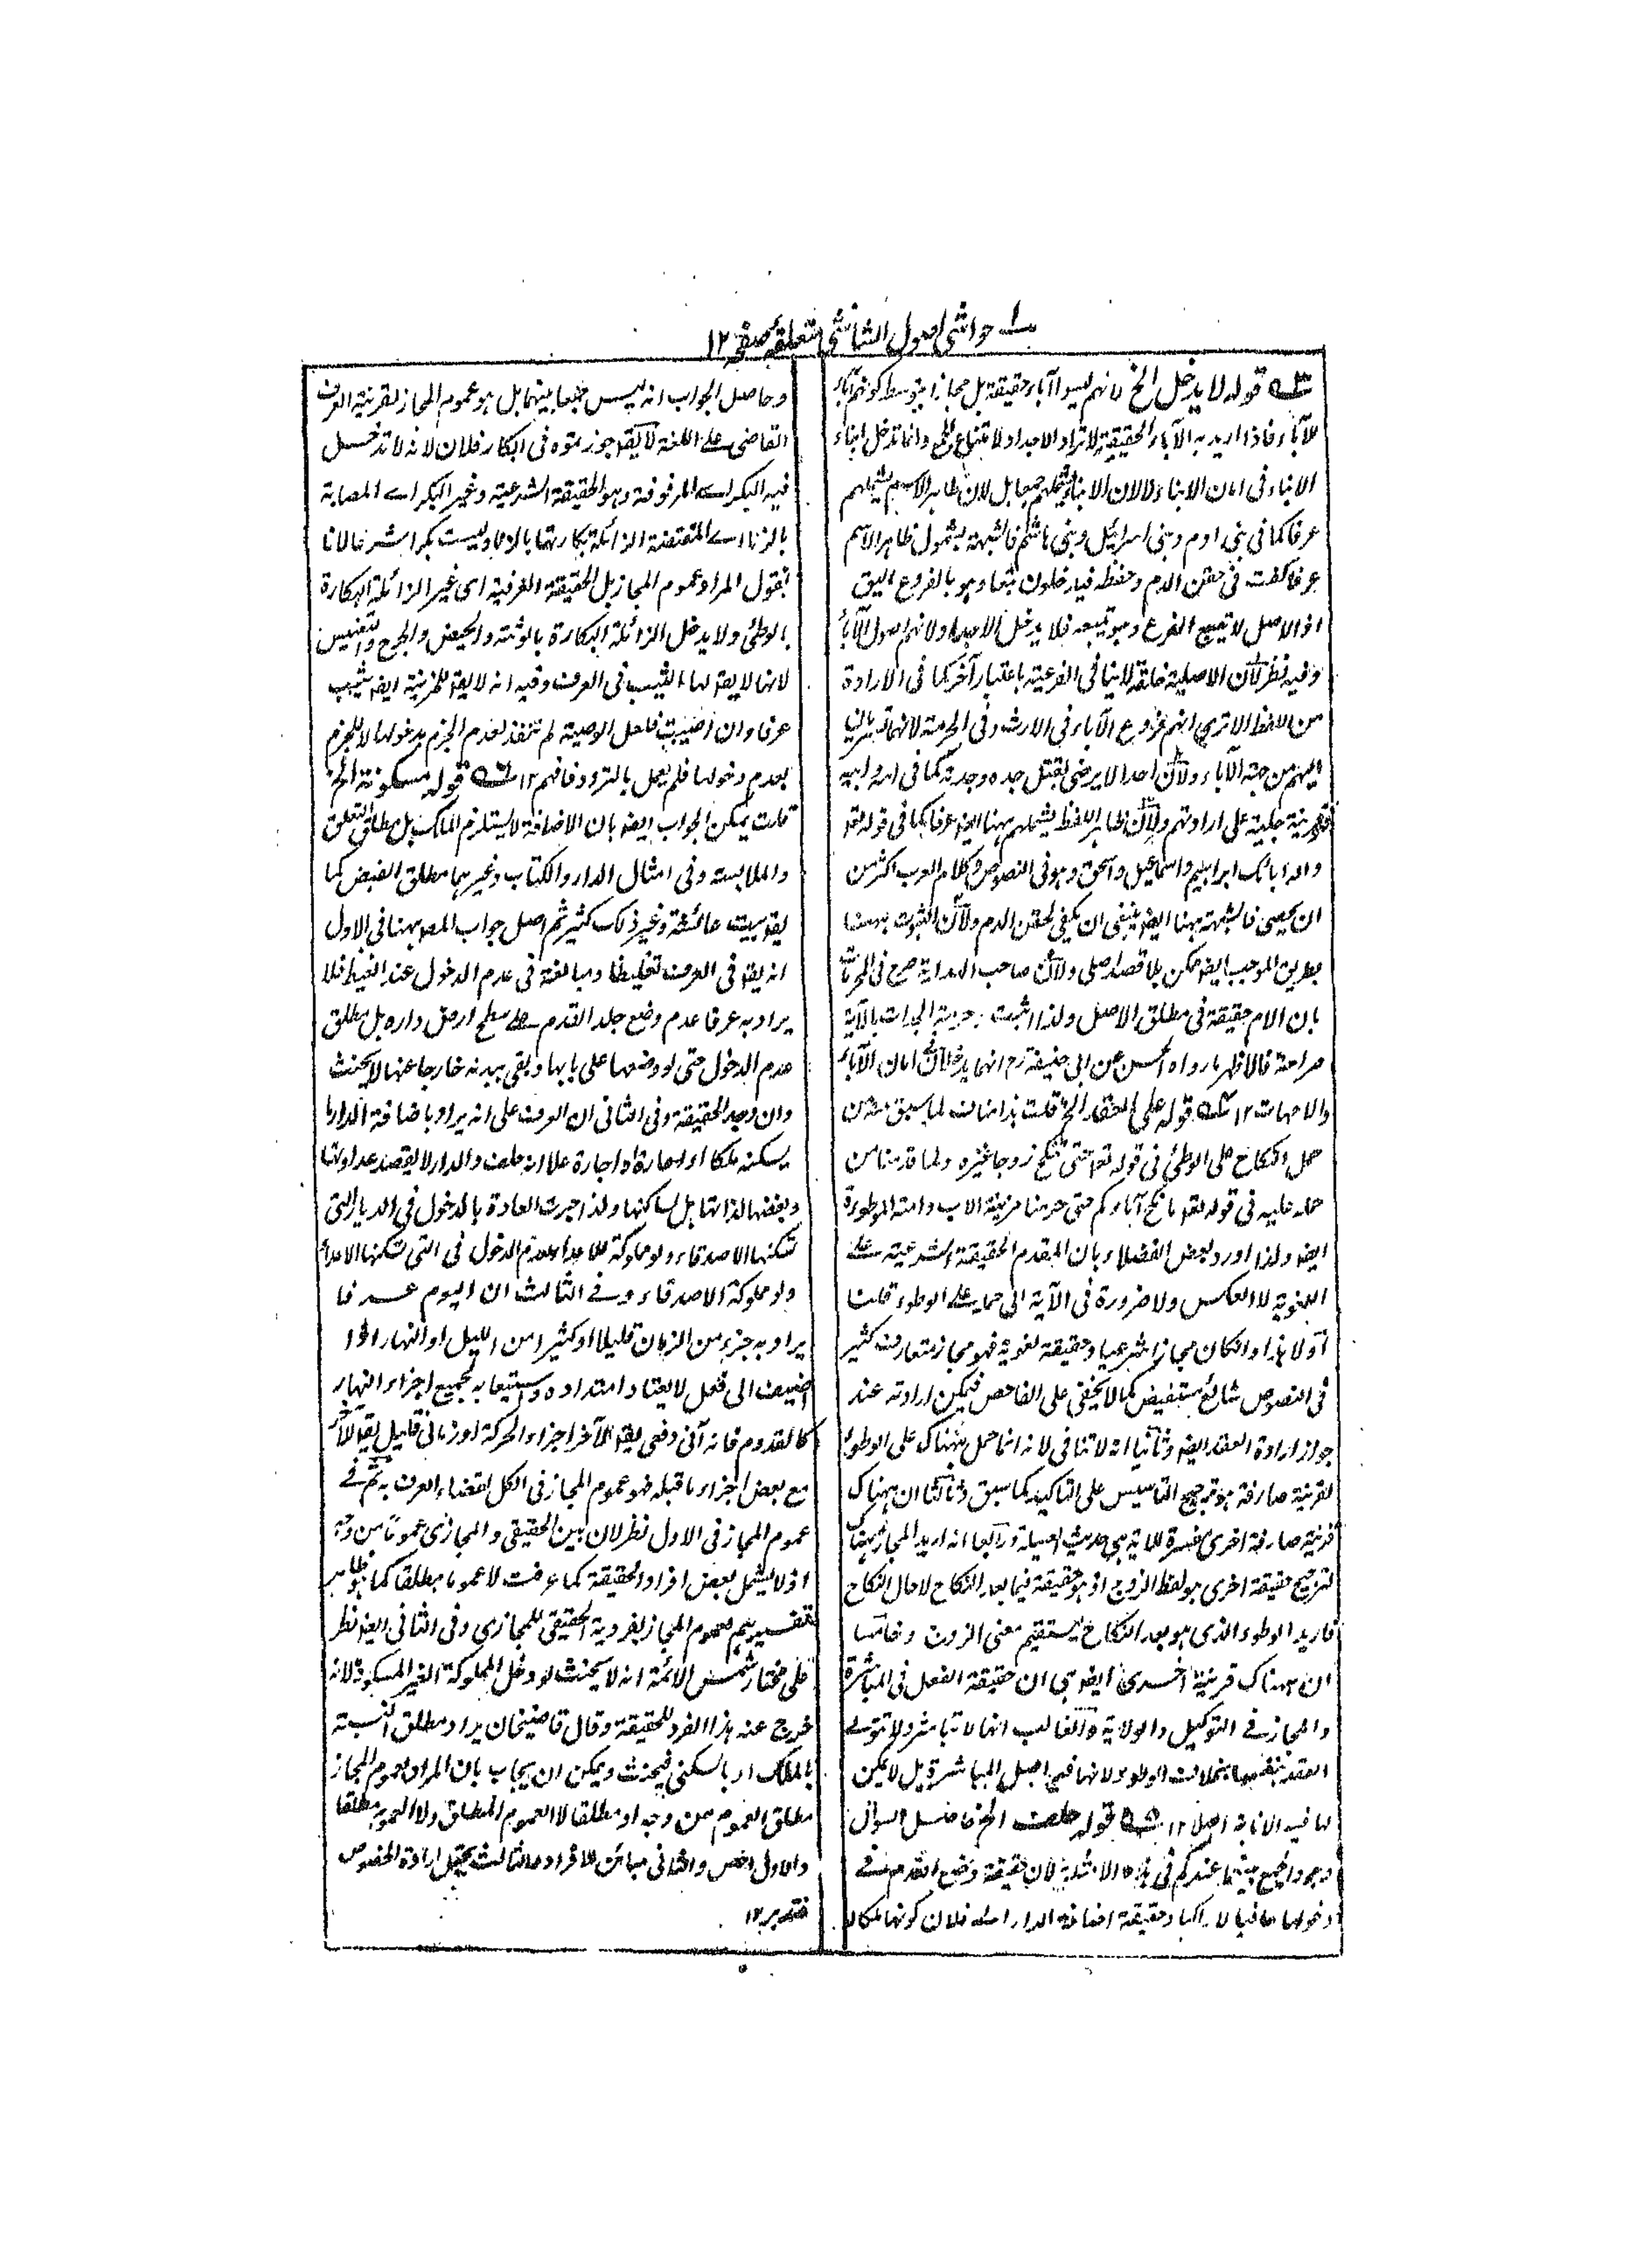 حواشى اصول الشاشى متعلقه صفحه ١٢
قوله لا يدخل الخ لانهم ليسوا آباء حقيقة بل مجازا بتوسط كونهم آباء
للآباء فاذا اريد به الآباء الحقيقية لا تراد الاجداد لامتناع الجمع وانما تدخل ابناء
الابناء فى امان الابناء لا لان الابناء يشملهم جميعا بل لان ظاهر الاسم يشملهم
عرفا كما فى بنى آدم وبنى اسرائيل وبنى هاشم فالشبهة بشمول ظاهر الاسم
عرفا كفت فى حقن الدم وحفظه فيدخلون تبعا وهو بالفروع اليق
اذ الاصل لا يتبع الفرع وهو تبعه فلا يدخل الاجداد لانهم اصول الآباء
وفيه نظر لان الاصلية خلقة لا ينافى الفرعية باعتبار آخر كما فى الارادة
من اللفظ الا ترى انهم فروع الآباء فى الارث وفى الحرمة لانهما تسريان
اليهم من جهة الآباء ولان احدا لا يرضى بقتل جده وجدته كما فى امه وابيه
فقرينة جلية على ارادتهم ولان ظاهر اللفظ يشملهم ههنا ايضا عرفا كما فى قوله تعه
واله ابائك ابراهيم واسماعيل واسحق وهو فى النصوص وكلام العرب اكثر من
ان يحصى فالشبهة ههنا ايضا ينبغى ان يكفى لحقن الدم ولان الثبوت ههنا
بطريق الموجب ايضا ممكن بلا قصد اصلى ولان صاحب الهداية صرح فى المحرمات
بان الام حقيقة فى مطلق الاصل ولذا اثبت حرمة الجدات بالآية
صراحة فالاظهر ما رواه الحسن عن ابى حنيفة رح انهما يدخلان فى امان الآباء
والامهات ١٢ قوله على العقد الخ قلت هذا مناف لما سبق من
حمل النكاح على الوطئ فى قوله تعه حتى تنكح زوجا غيره ولما قدمنا من
حمله عليه فى قوله تعه ما نكح آباءكم حتى حرمنا مزنية الاب وامته الموطوءة
ايضا ولذا اورد بعض الفضلاء بان المقدم الحقيقة الشرعية على
اللغوية لا العكس ولا ضرورة فى الآية الى حملها على الوطوء قلت
اولا هذا وان كان مجازا شرعيا وحقيقة لغوية فهو مجاز متعارف كثير
فى النصوص شائع مستفيض كما لا يخفى على الفاحص فيمكن ارادته عند
جواز ارادة العقد ايضا وثانيا انه لا تنافى لانه انما حمل هناك على الوطوء
لقرينة صارفة هو ترجيح التاسيس على التاكيد كما سبق وثالثا ان هناك
قرينة صارفة اخرى مفسرة للآية هى حديث العسيلة ورابعا انه اريد المجاز هناك
لترجيح حقيقة اخرى هو لفظ الزوج اذ هو حقيقة فيما بعد النكاح لا حال النكاح
فاريد الوطوء الذى هو بعد النكاح ليستقيم معنى الزوج وخامسا
ان هناك قرينة اخرى ايضا هى ان حقيقة الفعل فى المباشرة
والمجاز فى التوكيل والولاية والغالب انها لا تباشر ولا تتولى
العقد بنفسها بخلاف الوطوء لانها فيه اصل المباشرة بل لا يمكن
لها فيه الانابة اصلا ١٢ قوله حلف الخ حاصل السوال
وجود الجمع بينهما عندكم فى هذه الامثلة لان حقيقة وضع القدم فى
دخولها حافيا لا راكبا وحقيقة اضافة الدار الى فلان كونها ملكا له
وحاصل الجواب انه ليس جمعا بينهما بل هو عموم المجاز لقرينة العرف
القاضى على اللغة لا يقه جوزتموه فى ابكار فلان لانه لا تدخل
فيه البكر اے المزفوفة وهو الحقيقة الشرعية وغير البكر اے المصابة
بالزنا اے المفتضة الزائلة بكارتها بالزنا وليست بكرا شرعا لانا
نقول المراد عموم المجاز بل الحقيقة العرفية اى غير الزائلة البكارة
بالوطئ ولا يدخل الزائلة البكارة بالوثبة والحيض والجرح والتعنيس
لانها لا يقه لها الثيب فى العرف وفيه انه لا يقه للمزنية ايضا ثيب
عرفا وان اصيبت فلعل الوصية لم تنفذ لعدم الجزم بدخولها لا للجزم
بعدم دخولها فلم يعمل بالتردد فافهم ١٢ قوله مسكونة الخ
قلت يمكن الجواب ايضا بان الاضافة لا يستلزم الملك بل مطلق التعلق
والملابسة وفى امثال الدار والكتاب وغيرهما مطلق القبض كما
يقه بيت عائشة وغير ذلك كثير ثم اصل جواب المصه ههنا فى الاول
انه يقه فى العرف تغليظا ومبالغة فى عدم الدخول عند الغيظ فلا
يراد به عرفا عدم وضع جلد القدم على سطح ارض داره بل مطلق
عدم الدخول حتى لو وضعها على بابها وبقى بدنه خارجا عنها لا يحنث
وان وجد الحقيقة وفى الثانى ان العرف على انه يراد باضافة الدار ما
يسكنه ملكا او اعارة او اجارة علا انه حلف والدار لا يقصد عداوتها
وبغضها لذاتها بل لساكنها ولذا جرت العادة بالدخول فى الديار التى
تسكنها الاصدقاء ولو مملوكة للاعداء وعدم الدخول فى التى تسكنها الاعداء
ولو مملوكة الاصدقاء وفى الثالث ان اليوم عرفا
يراد به جزء من الزمان قليلا او كثيرا من الليل او النهار اذا
اضيف الى فعل لا يعتاد امتداده واستيعابه لجميع اجزاء النهار
كالقدوم فانه آنى دفعى يقه للآخر اجزاء الحركة او زمانى قليل يقه للآخر
مع بعض اجزاء ما قبله فهو عموم المجاز فى الكل لقضاء العرف به ثم فى
عموم المجاز فى الاول نظر لان بين الحقيقى والمجازى عموما من وجه
اذ لا يشمل بعض افراد الحقيقة كما عرفت لا عموما مطلقا كما هو ظاهر
تفسيرهم عموم المجاز بفردية الحقيقى للمجازى وفى الثانى ايضا نظر
على مختار شمس الائمة انه لا يحنث لو دخل المملوكة الغير المسكونة لانه
خرج عنه هذا الفرد للحقيقة وقال قاضيخان يراد مطلق النسبة
بالملك او بالسكنى فيحنث ويمكن ان يجاب بان المراد بعموم المجاز
مطلق العموم من وجه او مطلقا لا العموم المطلق ولا العموم مطلقا
والاول اخص والثانى مبائن للافراد والثالث يحتمل ارادة الخصوص
فتدبر ١٢